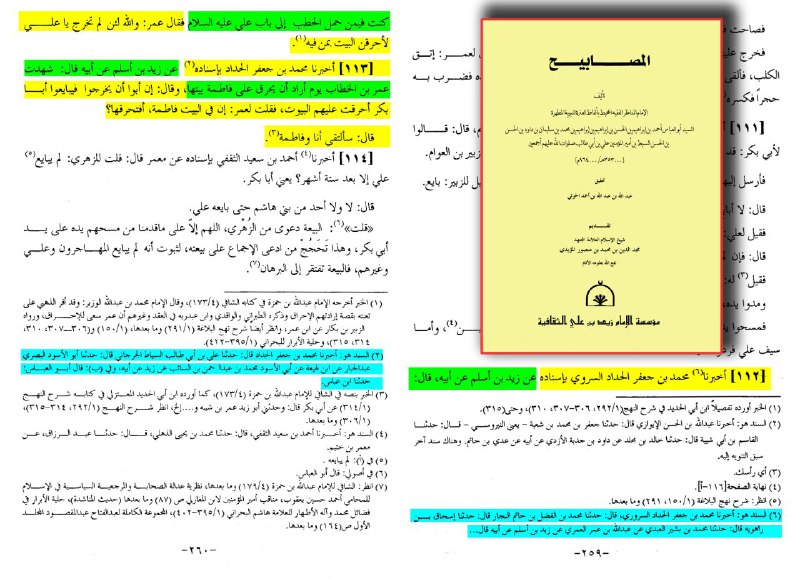 فصاحت ف
فخرج علي
لعمر: إتق
الكلب، فألقى
ده فضرب به
حجراً فكسره
[١١١]
م، قال: قالوا
لأبي بكر: قد
زبير بن العوام.
فأرسل إليه
ل للزبير: بايع.
قال: لا أبا
فقيل لعلي:
قال: فإن لم
فقيل(٣) له:
ومدوا يده،
فمسحوا يد
ـن(٤)، وأما
سيف علي
[١١٢] أخبرنا(٦) محمد بن جعفر الحداد السروي بإسناده عن زيد بن أسلم عن أبيه، قال:
(١) الخبر أورده تفصيلاً ابن أبي الحديد في شرح النهج (٢٩٢/١، ٣٠٦-٣٠٧، ٣١٠)، وحتى (٣١٥).
(٢) السند هو: أخبرنا عبدالله بن الحسن الإيوازي قال: حدثنا جعفر بن محمد بن شعبة – يعني النيروسي – قال: حدثنا
القاسم بن أبي شيبة قال: حدثنا خالد بن مخلد عن داود بن يزيد الأزدي عن أبيه عن عدي بن حاتم. وهناك سند آخر
سبق التنويه إليه.
(٣) أي رأسك.
(٤) نهاية الصفحة [١١٦-أ].
(٥) انظر: شرح نهج البلاغة (١٥٠/١، ٢٩١) وما بعدها.
(٦) السند هو: أخبرنا محمد بن جعفر الحداد السروري، قال: حدثنا محمد بن الفضل بن حاتم النجار قال: حدثنا إسحاق بـــن
راهويه قال: حدثنا محمد بن بشير العبدي عن عبدالله بن عمر العمري عن زيد بن أسلم عن أبيه قال...
-٢٥٩-
المصابيح
تأليف
السيد أبو العباس أحمد بن إبراهيم بن الحسن بن إبراهيم بن إبراهيم بن محمد بن سليمان بن داود بن الحسن
بن الحسن السبط بن أمير المؤمنين علي بن أبي طالب صلوات الله عليهم أجمعين
تحقيق
عبد الله بن عبد الله بن أحمد الحوثي
تقديم
شيخ الإسلام العلامة المجتهد
مجد الدين بن محمد بن منصور المؤيدي
مؤسسة الإمام زيد بن علي الثقافية
كنت فيمن حمل الحطب إلى باب علي عليه السلام فقال عمر: والله لئن لم تخرج يا علـــي
لأحرقن البيت بمن فيه(١).
[١١٣] أخبرنا محمد بن جعفر الحداد بإسناده(٢) عن زيد بن أسلم عن أبيه قال: شهدت
عمر بن الخطاب يوم أراد أن يحرق على فاطمة بيتها، وقال: إن أبوا أن يخرجوا فيبايعوا أبـــا
بكر أحرقت عليهم البيوت، فقلت لعمر: إن في البيت فاطمة، أفتحرقها؟
قال: سألتقي أنا وفاطمة(٣).
[١١٤] أخبرنا(٤) أحمد بن سعيد الثقفي بإسناده عن معمر قال: قلت للزهري: لم يبايع(٥)
علي إلا بعد ستة أشهر؟ يعني أبا بكر.
قال: لا ولا أحد من بني هاشم حتى بايعه علي.
«قلت»(٦): البيعة دعوى من الزُهْري، اللهم إلاَّ على ماقدمنا من مسحهم يده على يـــد
أبي بكر، وهذا تَحَجُجٌ من ادعى الإجماع على بيعته، لثبوت أنه لم يبايع المهـاجرون وعلـي
وغيرهم، فالبيعة تفتقر إلى البرهان(٧).
(١) الخبر أخرجه الإمام عبدالله بن حمزة في كتابه الشافي (١٧٣/٤)، وقال الإمام محمد بن عبدالله الوزير: وقد أقر الذهبي على
تعنته بقصة إرادتهم الإحراق وذكره الطبراني والواقدي وابن عبدربه في العقد وغيرهم أن عمر سعى للإحـــراق، ورواه
الزبير بن بكار عن ابن عمر، وانظر أيضاً شرح نهج البلاغة (٢٩١/١) وما بعدها، (١٥٠/١) (٣٠٦-٣٠٧، ٣١٠،
٣١٥)، وحلية الأبرار للبحراني (٣٩٥/١-٤٠٢).
(٢) السند هو: أخبرنا محمد بن جعفر الحداد قال: حدثنا علي بن أبي طالب السياط الجرجاني قال: حدثنا أبو الأسود البصري
عبدالجبار عن ابن لهيعة عن أبي الأسود محمد بن عبدا حمن بن السائب عن زيد عن أبيه، وفي (ب): قال أبو العباس:
حدثنا ابن عباس.
(٣) الخبر بنصه في الشافي للإمام عبدالله بن حمزة (١٧٣/٤)، كما أورده ابن أبي الحديد المعـتزلي في كتابـــه شـــرح النهـــج
(٣١٤/١) عن أبي بكر قال: وحدثني أبو زيد عمر بن شيبة و....إلخ، انظر شرح النهـــج (٢٩٢/١، ٣١٤-٣١٥)،
(٣٠٦/١) وما بعدها.
(٤) السند هو: أخبرنـا أحمد بن سعيد الثقفي، قال: حدثنا محمد بن يحيى الذهلي، قال: حدثنـا عبـد الـــرزاق، عن
معمر بن خثيم.
(٥) في (أ): لم يبايعه.
(٦) في أصولي: قال أبو العباس.
(٧) انظر: الشافي للإمام عبدالله بن حمزة (١٧٩/٤) وما بعدها، نظرية عدالة الصحابـة والمرجعيـة السياسـية في الإســـلام
للمحامي أحمد حسين يعقوب، مناقب أمير المؤمنين لابن المغازلي ص (٨٧) وما بعدها (حديث المناشدة)، حلية الأبرار في
فضائل محمد وآله الأطهار للعلامة هاشم البحراني (٣٩٥/١-٤٠٢)، المجموعة الكاملة لعبدالفتاح عبدالمقصود المجلـد
الأول ص (١٦٤) وما بعدها.
-٢٦٠-